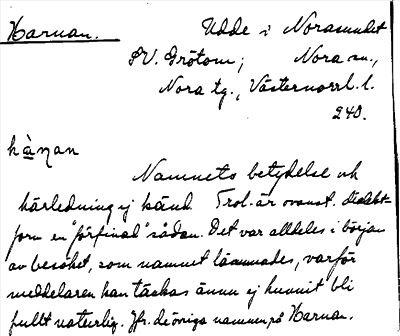 Harnan. Udde i Norasundet
SV. Grötom; Nora sn.,
Nora tg., Västernorrl. l.
240.
hànan
Namnets betydelse och
härledning ej känd Trol. är ovanst. dialekt-
form en "förfinad" sådan. Det var alldeles i början
av besöket, som namnet lämnades, varför
meddelaren kan täckas ännu ej hunnit bli
fullt naturlig. Jfr. de övriga namnen på Harnan.